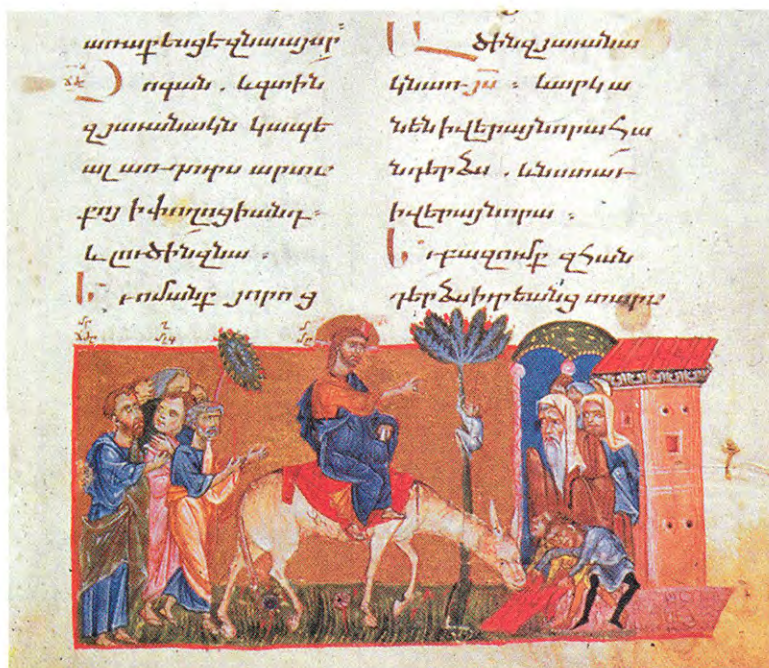 առաքեսցե զնա այսր
Չոգան. և գտին
զյաւանակն կապե
ալ առ դուրս արտա
քոյ ի փողոցի անդ.
և լուծին զնա.
Եւ ոմանք յորոց
Ածին զյաւանա
կն առ յս. և արկա
նեն ի վերայ նորա հա
նդերձս. և նստաւ
ի վերայ նորա.
Եւ բազումք զհան
դերձս իւրեանց տարա